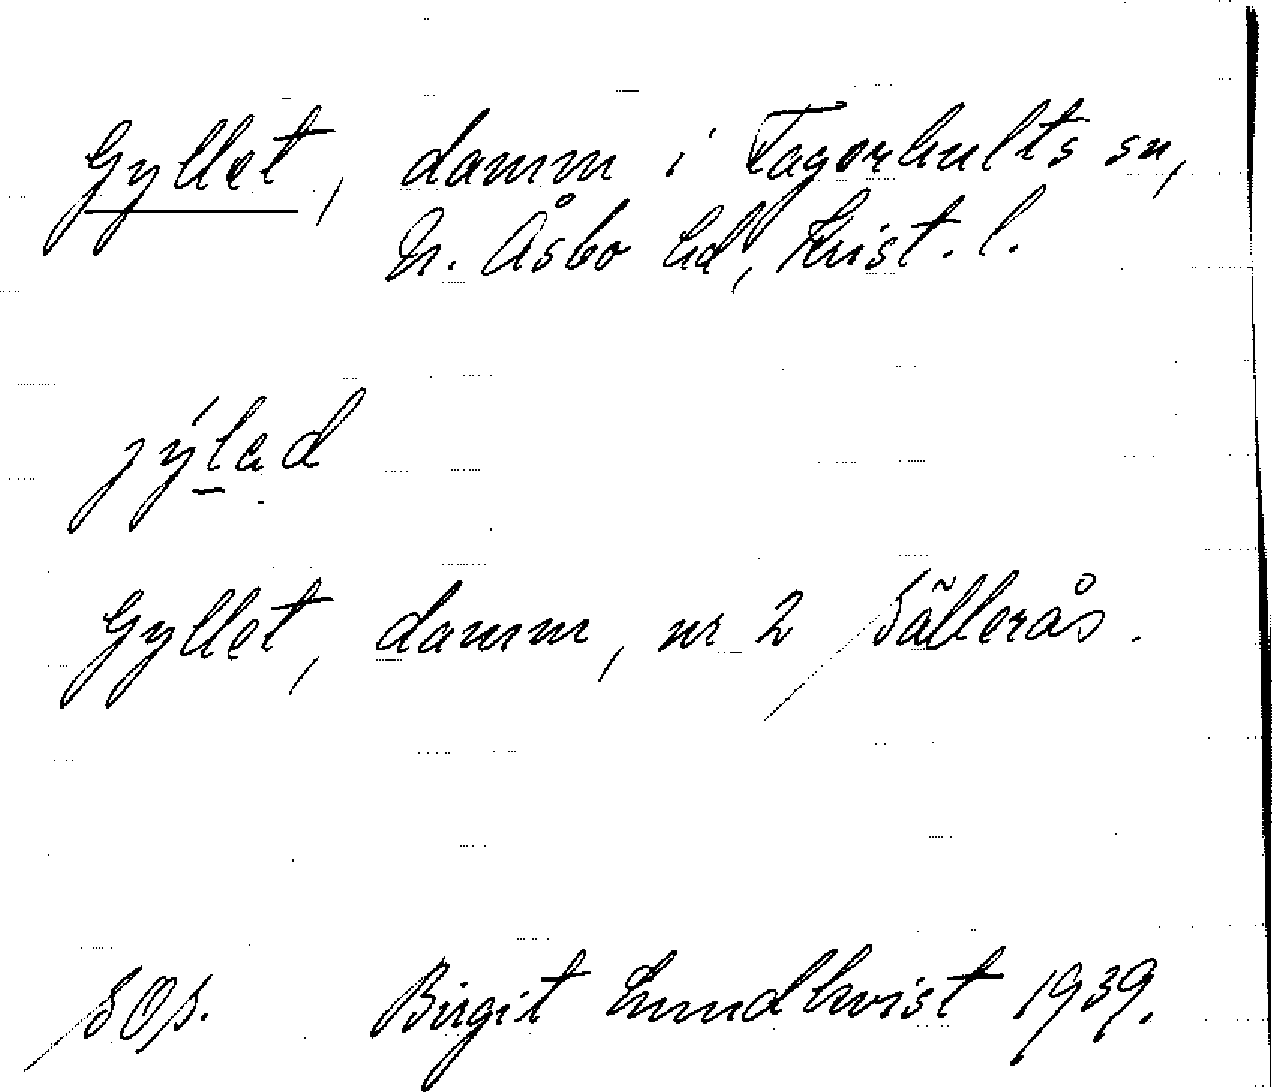 Gyllet, damm i Fagerhults sn,
N. Åsbo hd, Krist. l.
jýlad
Gyllet, damm, nr 2 Sälleråș.
sos. Birgit Lundkvist 1939.